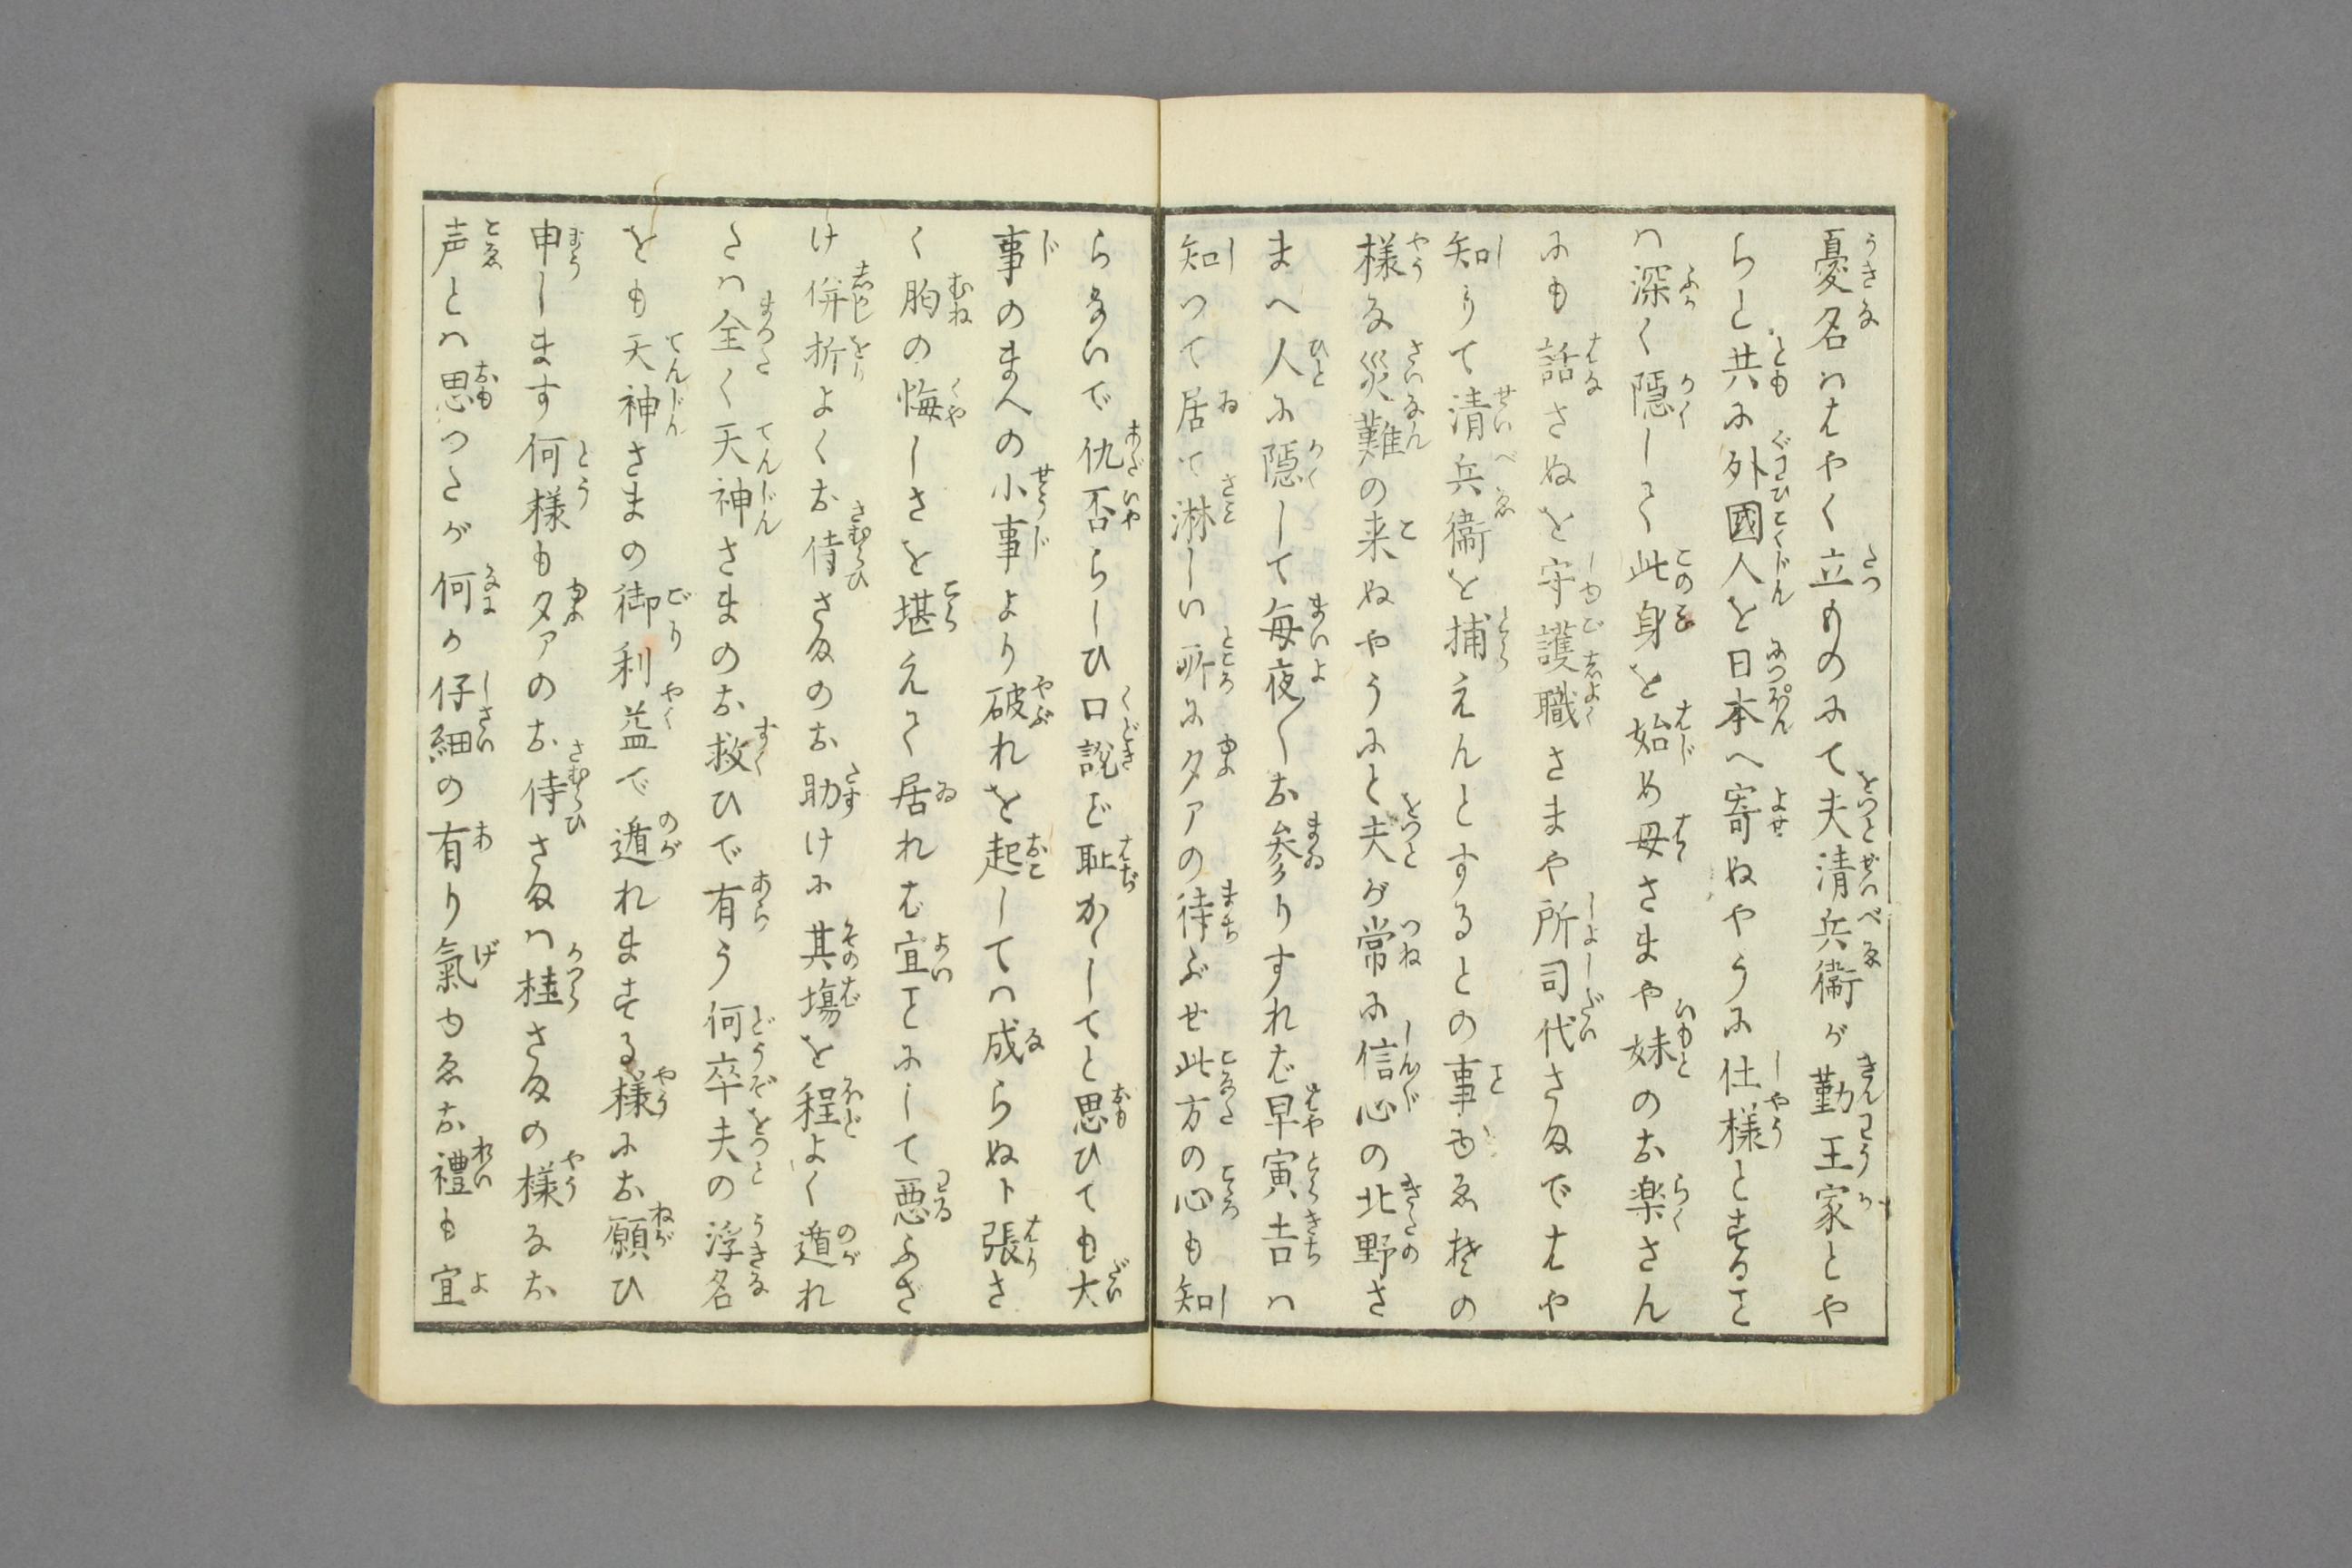 憂名ははやく立ものにて夫清兵衛が勤王家とや
らと共に外國人を日本へ寄ぬやうに仕様とするヿ
は深く隠して此身を始め母さまや妹のお楽さん
にも話さぬを守護職さまや所司代さまではや
知りて清兵衛を捕えんとするとの事ゆゑ其の
様な災難の来ぬやうにと夫が常に信心の北野さ
まへ人に隠して毎夜〳〵お参りすれば早寅吉は
知つて居て淋しい所にタアの待ぶせ此方の心も知
らないで仇否らしひ口説ど耻かしてと思ひても大
事のまへの小事より破れを起しては成らぬト張さ
く胸の悔しさを堪えて居れば宜ヿにして悪ふざ
け併折よくお侍さまのお助けに其場を程よく遁れ
たは全く天神さまのお救ひで有う何卒夫の浮名
をも天神さまの御利益で遁れまする様にお願ひ
申します何様もタアのお侍さまは桂さまの様なお
声とは思つたが何か仔細の有り氣ゆゑお禮も宜